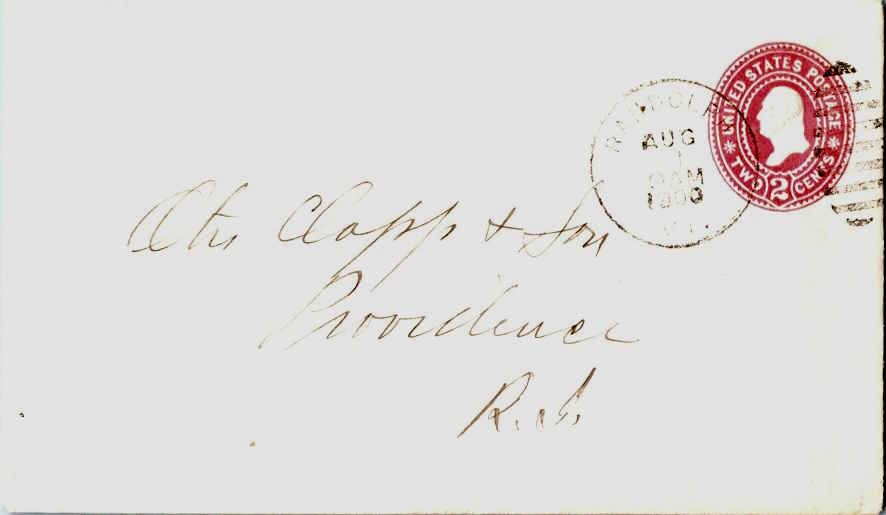 UNITED STATES POSTAGE
TWO 2 CENTS
RANDOLPH
AUG
1
AM
1900
VT.
Otis Clapp & Son
Providence
R.I.